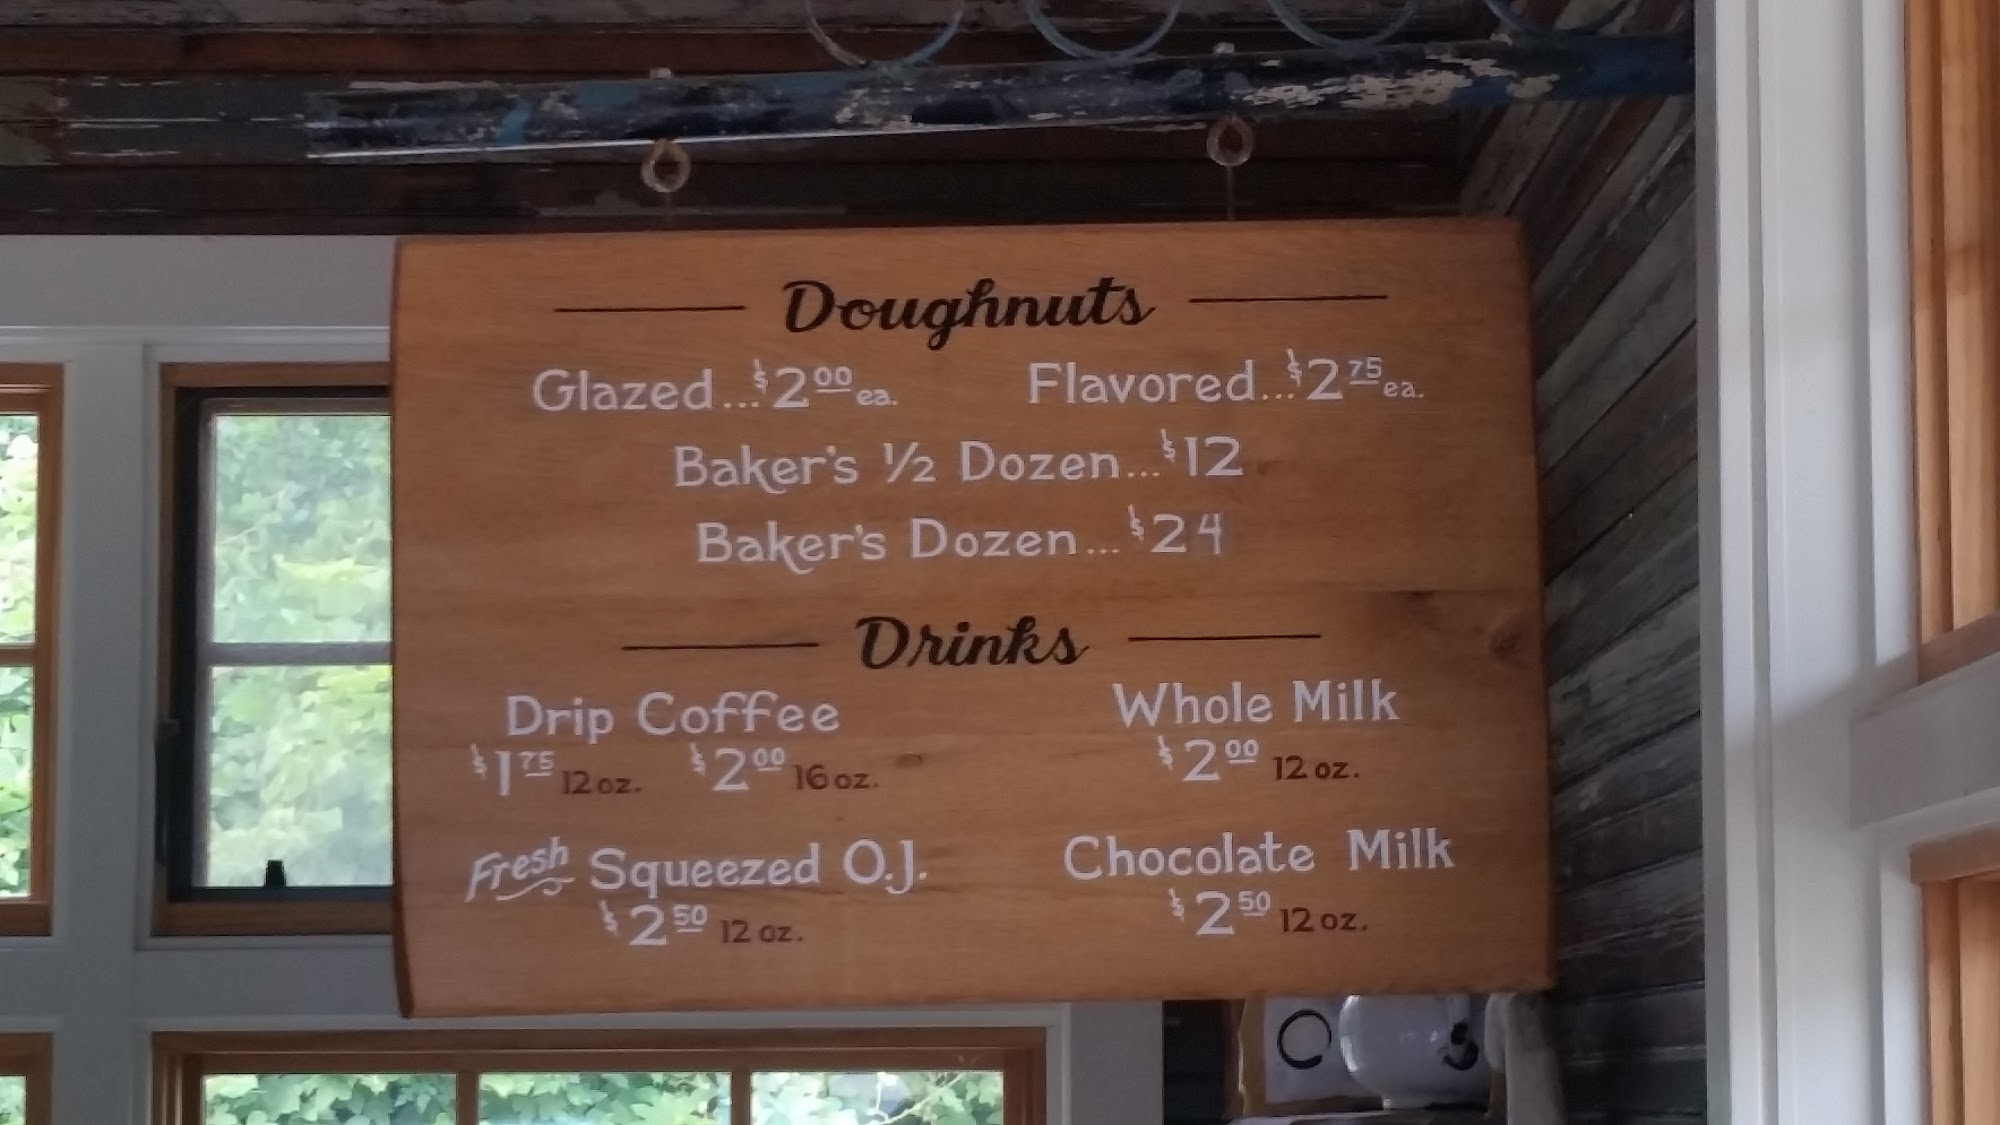 Doughnuts
Glazed...$2.00 ea. Flavored...$2.75 ea.
Baker's 1/2 Dozen...$12
Baker's Dozen...$24
Drinks
Drip Coffee Whole Milk
$1.75 12 oz. $2.00 16 oz. $2.00 12 oz.
Fresh Squeezed O.J. Chocolate Milk
$2.50 12 oz. $2.50 12 oz.